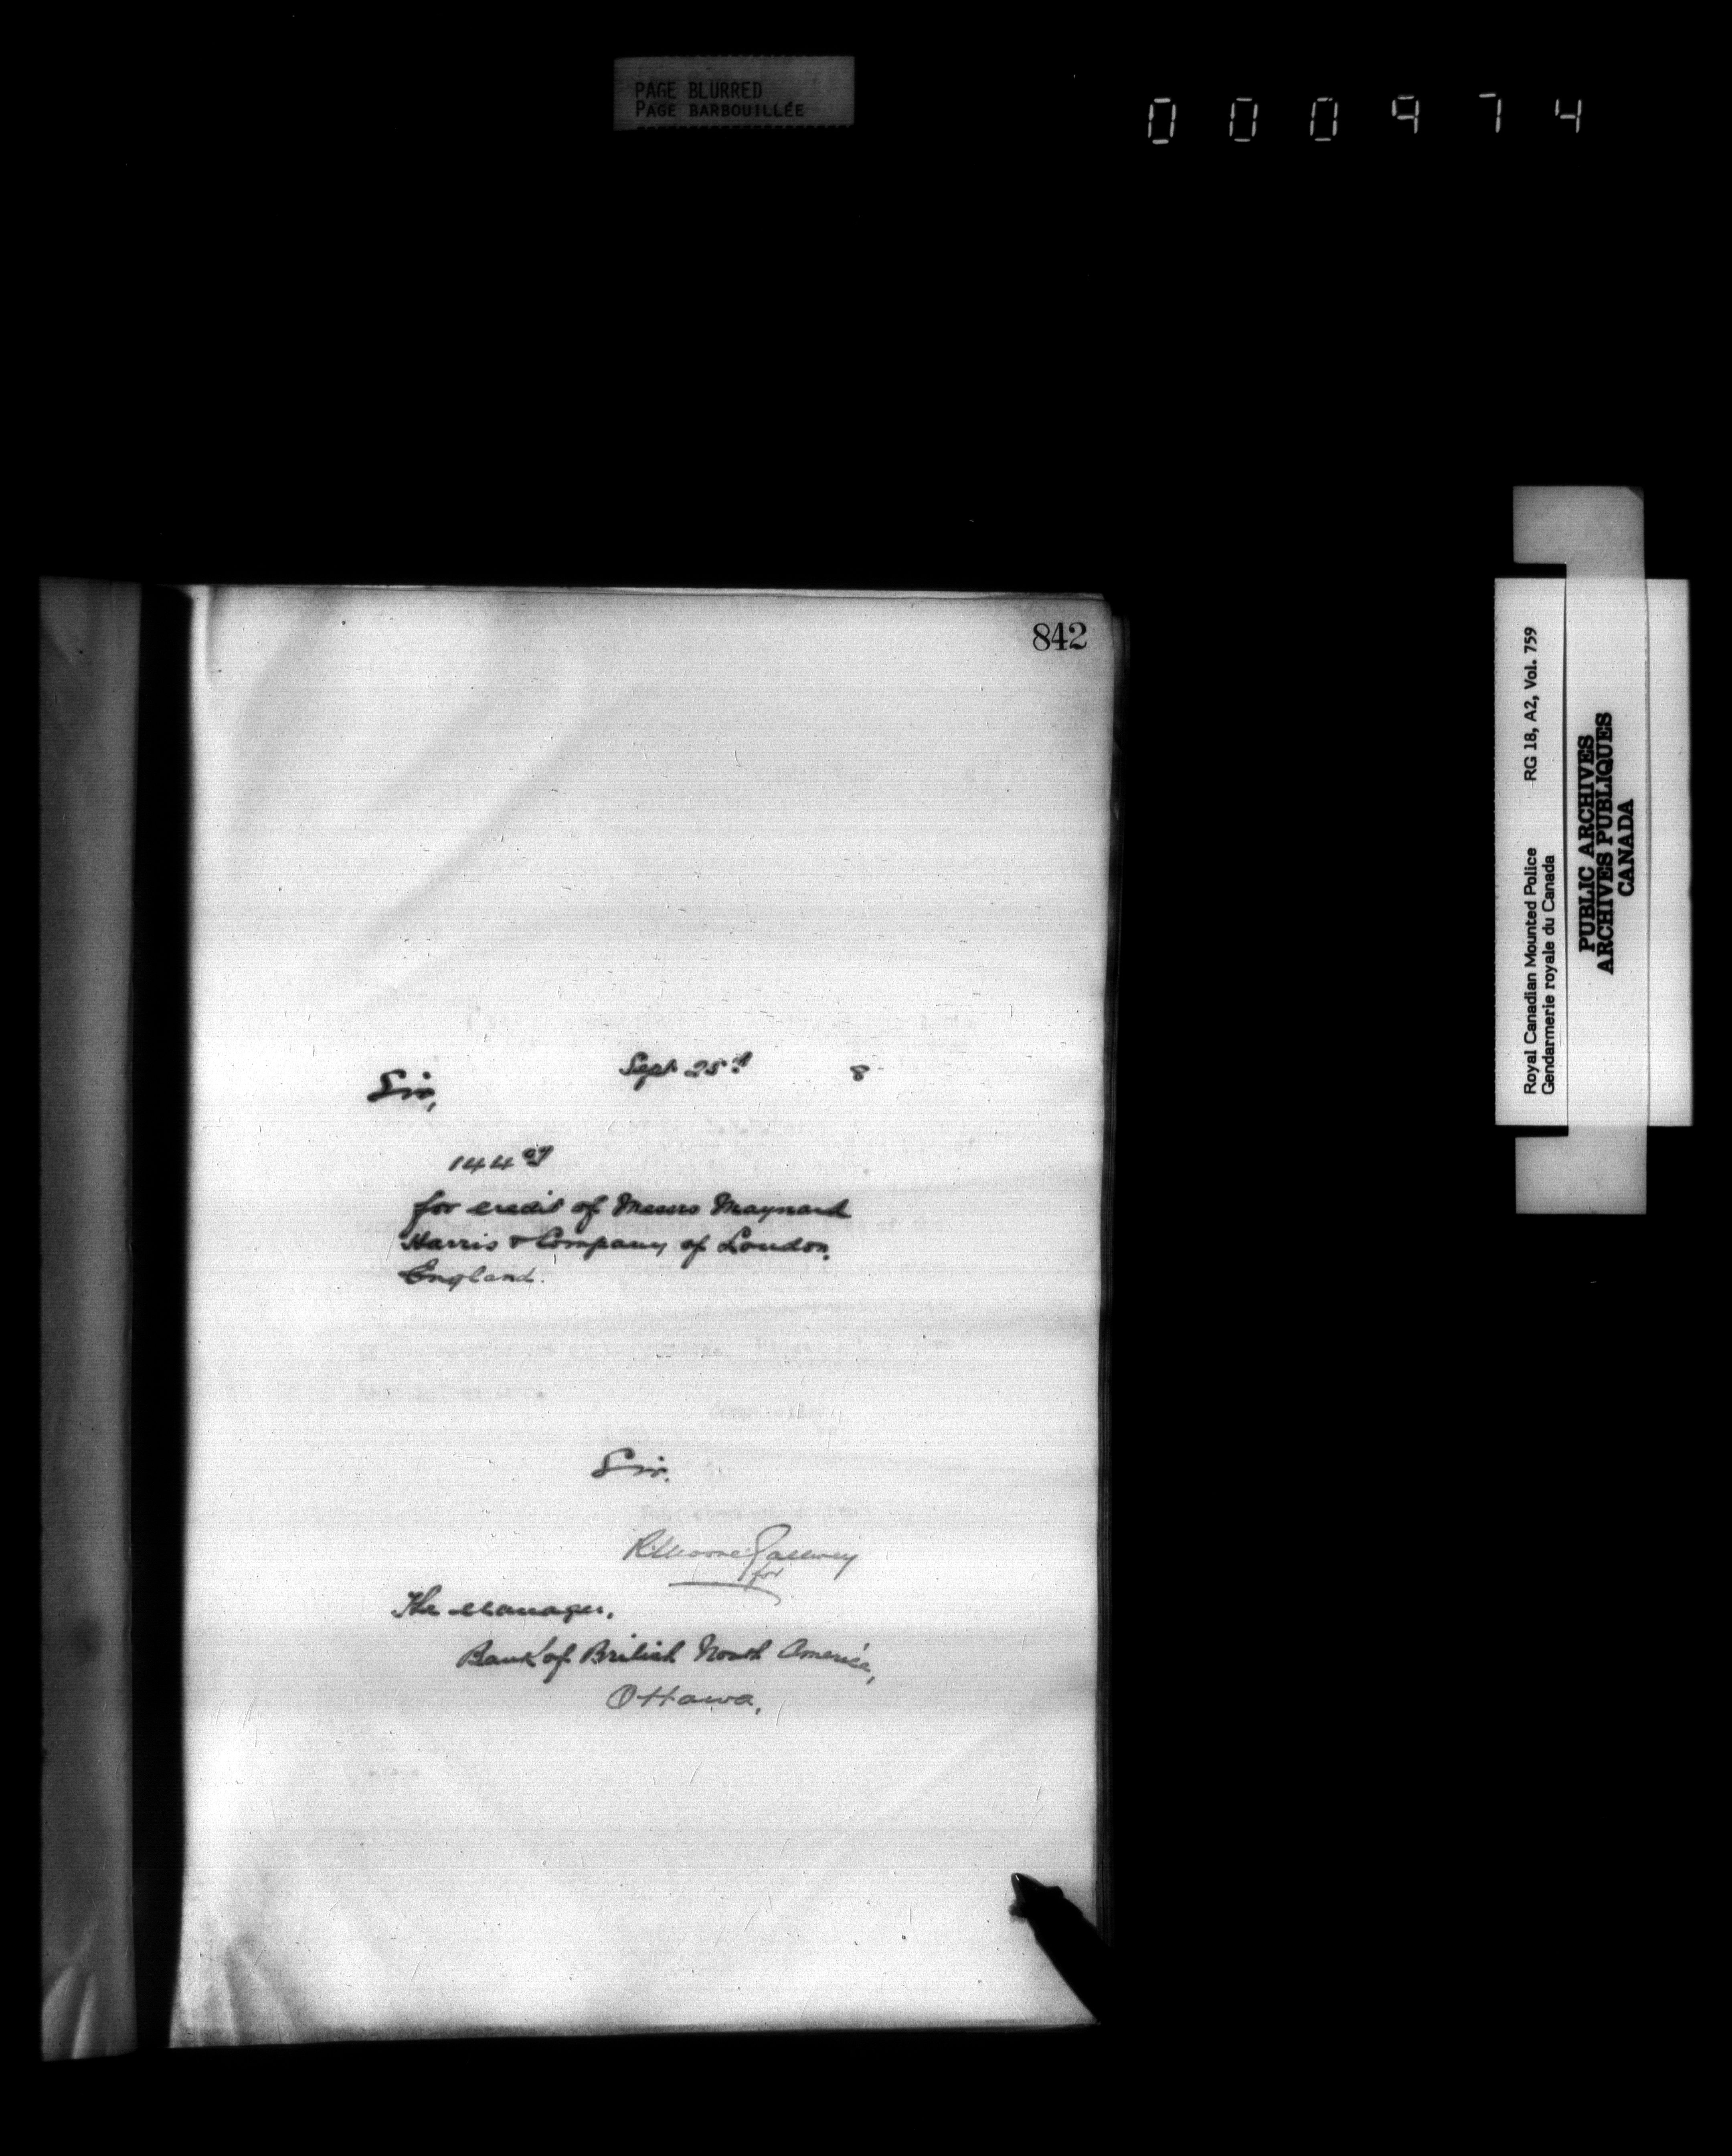 PAGE BLURRED
PAGE BARBOUILLÉE
000974
842
Sept 25th 8
Sir,
144.07
for credit of Messrs Maynard
Harris & Company of London,
England.
Sir,
for
The Manager,
Bank of British North America,
Ottawa,
Royal Canadian Mounted Police RG 18, A2, Vol. 759
Gendarmerie royale du Canada
PUBLIC ARCHIVES
ARCHIVES PUBLIQUES
CANADA